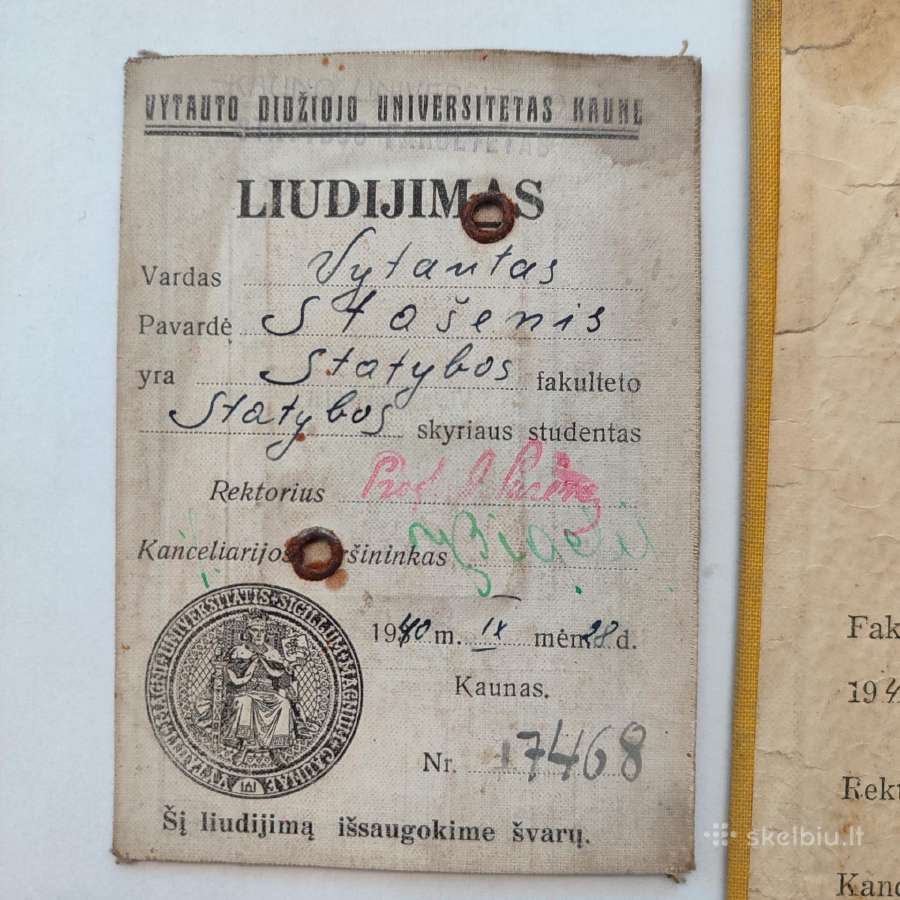 VYTAUTO DIDŽIOJO UNIVERSITETAS KAUNE
LIUDIJIMAS
Vardas Vytautas
Pavardė Stašenis
yra Statybos fakulteto
Statybos skyriaus studentas
Rektorius Prof.
Kanceliarijos
1940 m. IX mėn. 28 d.
Kaunas.
Nr. 17468
Šį liudijimą išsaugokime švarų.
Fak
194
Rekt
Kanc
skelbiu.lt